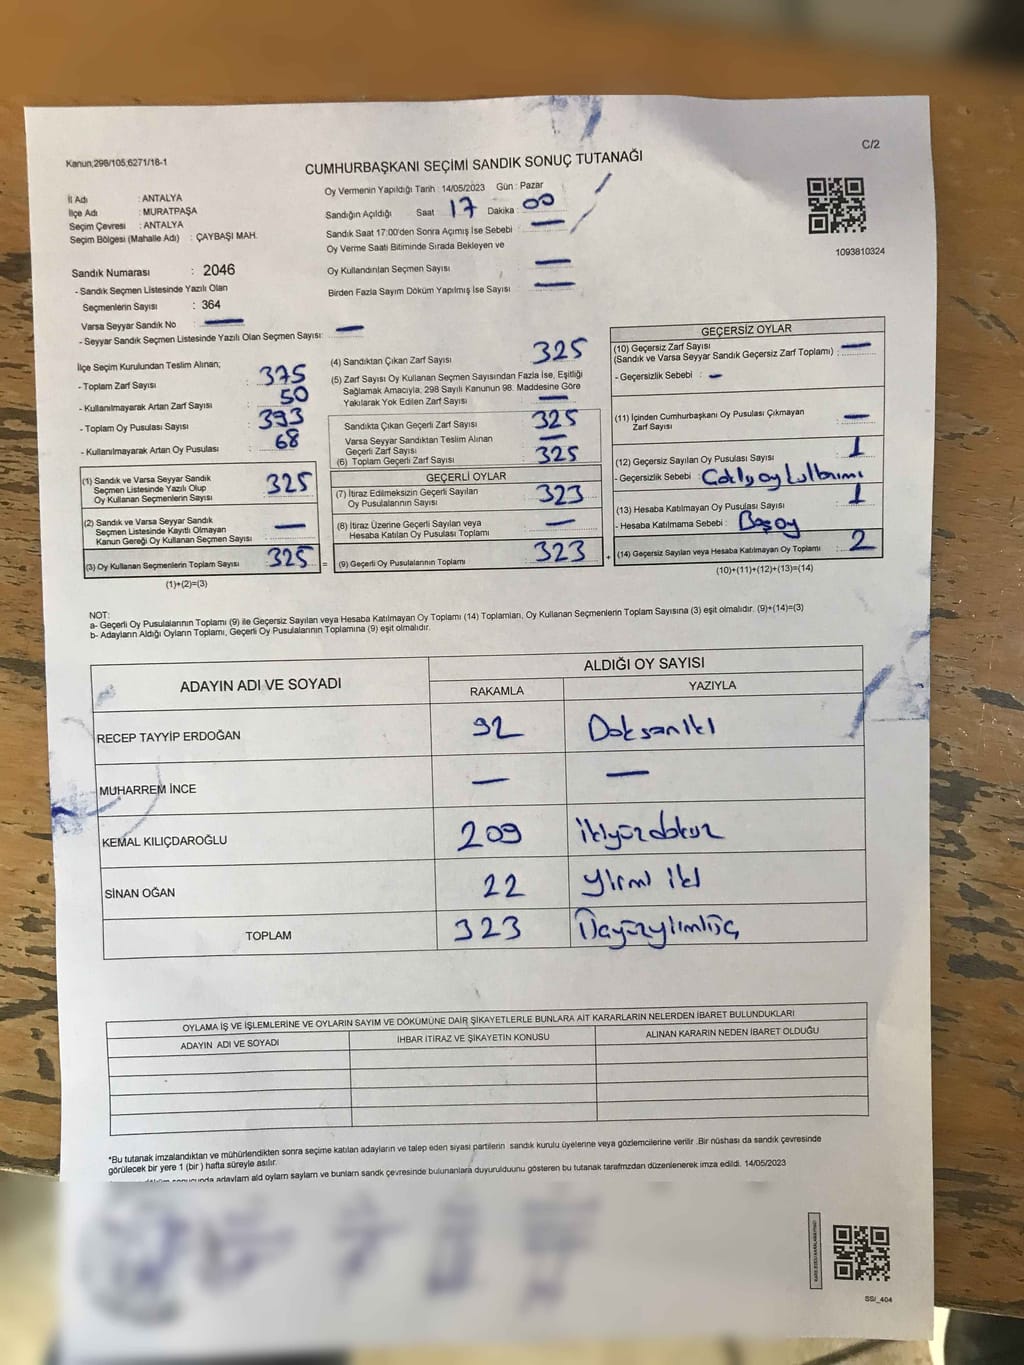 Kanun,298/105,6271/18-1
C/2
CUMHURBAŞKANI SEÇİMİ SANDIK SONUÇ TUTANAĞI
İl Adı : ANTALYA
İlçe Adı : MURATPAŞA
Seçim Çevresi : ANTALYA
Seçim Bölgesi (Mahalle Adı) : ÇAYBAŞI MAH.
Oy Vermenin Yapıldığı Tarih : 14/05/2023 Gün : Pazar
Sandığın Açıldığı Saat 17 Dakika : 00
Sandık Saat 17:00'den Sonra Açımış İse Sebebi : —
Oy Verme Saati Bitiminde Sırada Bekleyen ve
Oy Kullandırılan Seçmen Sayısı : —
Birden Fazla Sayım Döküm Yapılmış İse Sayısı : —
1093810324
Sandık Numarası : 2046
- Sandık Seçmen Listesinde Yazılı Olan
Seçmenlerin Sayısı : 364
Varsa Seyyar Sandık No : —
- Seyyar Sandık Seçmen Listesinde Yazılı Olan Seçmen Sayısı: —
İlçe Seçim Kurulundan Teslim Alınan;
- Toplam Zarf Sayısı : 375
- Kullanılmayarak Artan Zarf Sayısı : 50
- Toplam Oy Pusulası Sayısı : 393
- Kullanılmayarak Artan Oy Pusulası : 68
(1) Sandık ve Varsa Seyyar Sandık
Seçmen Listesinde Yazılı Olup
Oy Kullanan Seçmenlerin Sayısı : 325
(2) Sandık ve Varsa Seyyar Sandık
Seçmen Listesinde Kayıtlı Olmayan
Kanun Gereği Oy Kullanan Seçmen Sayısı : —
(3) Oy Kullanan Seçmenlerin Toplam Sayısı : 325 =
(1)+(2)=(3)
(4) Sandıktan Çıkan Zarf Sayısı : 325
(5) Zarf Sayısı Oy Kullanan Seçmen Sayısından Fazla İse, Eşitliği
Sağlamak Amacıyla, 298 Sayılı Kanunun 98. Maddesine Göre
Yakılarak Yok Edilen Zarf Sayısı : —
Sandıkta Çıkan Geçerli Zarf Sayısı : 325
Varsa Seyyar Sandıktan Teslim Alınan
Geçerli Zarf Sayısı : —
(6) Toplam Geçerli Zarf Sayısı : 325
GEÇERLİ OYLAR
(7) İtiraz Edilmeksizin Geçerli Sayılan
Oy Pusulalarının Sayısı : 323
(8) İtiraz Üzerine Geçerli Sayılan veya
Hesaba Katılan Oy Pusulası Toplamı : —
(9) Geçerli Oy Pusulalarının Toplamı : 323 +
GEÇERSİZ OYLAR
(10) Geçersiz Zarf Sayısı
(Sandık ve Varsa Seyyar Sandık Geçersiz Zarf Toplamı) : —
- Geçersizlik Sebebi : —
(11) İçinden Cumhurbaşkanı Oy Pusulası Çıkmayan
Zarf Sayısı : —
(12) Geçersiz Sayılan Oy Pusulası Sayısı : 1
- Geçersizlik Sebebi : oy kullanımı
(13) Hesaba Katılmayan Oy Pusulası Sayısı : 1
- Hesaba Katılmama Sebebi : Boş oy
(14) Geçersiz Sayılan veya Hesaba Katılmayan Oy Toplamı : 2
(10)+(11)+(12)+(13)=(14)
NOT:
a- Geçerli Oy Pusulalarının Toplamı (9) ile Geçersiz Sayılan veya Hesaba Katılmayan Oy Toplamı (14) Toplamları, Oy Kullanan Seçmenlerin Toplam Sayısına (3) eşit olmalıdır. (9)+(14)=(3)
b- Adayların Aldığı Oyların Toplamı, Geçerli Oy Pusulalarının Toplamına (9) eşit olmalıdır.
ADAYIN ADI VE SOYADI
ALDIĞI OY SAYISI
RAKAMLA YAZIYLA
RECEP TAYYİP ERDOĞAN 92 Doksan iki
MUHARREM İNCE — —
KEMAL KILIÇDAROĞLU 209 ikiyüzdokuz
SİNAN OĞAN 22 yirmi iki
TOPLAM 323 Üçyüzyirmiüç
OYLAMA İŞ VE İŞLEMLERİNE VE OYLARIN SAYIM VE DÖKÜMÜNE DAİR ŞİKAYETLERLE BUNLARA AİT KARARLARIN NELERDEN İBARET BULUNDUKLARI
ADAYIN ADI VE SOYADI İHBAR İTİRAZ VE ŞİKAYETİN KONUSU ALINAN KARARIN NEDEN İBARET OLDUĞU
*Bu tutanak imzalandıktan ve mühürlendikten sonra seçime katılan adayların ve talep eden siyasi partilerin sandık kurulu üyelerine veya gözlemcilerine verilir .Bir nüshası da sandık çevresinde
görülecek bir yere 1 (bir ) hafta süreyle asılır.
adayların aldı oyların sayların ve bunların sandık çevresinde bulunanlara duyurulduunu gösteren bu tutanak tarafmzdan düzenlenerek imza edildi. 14/05/2023
SSİ_404